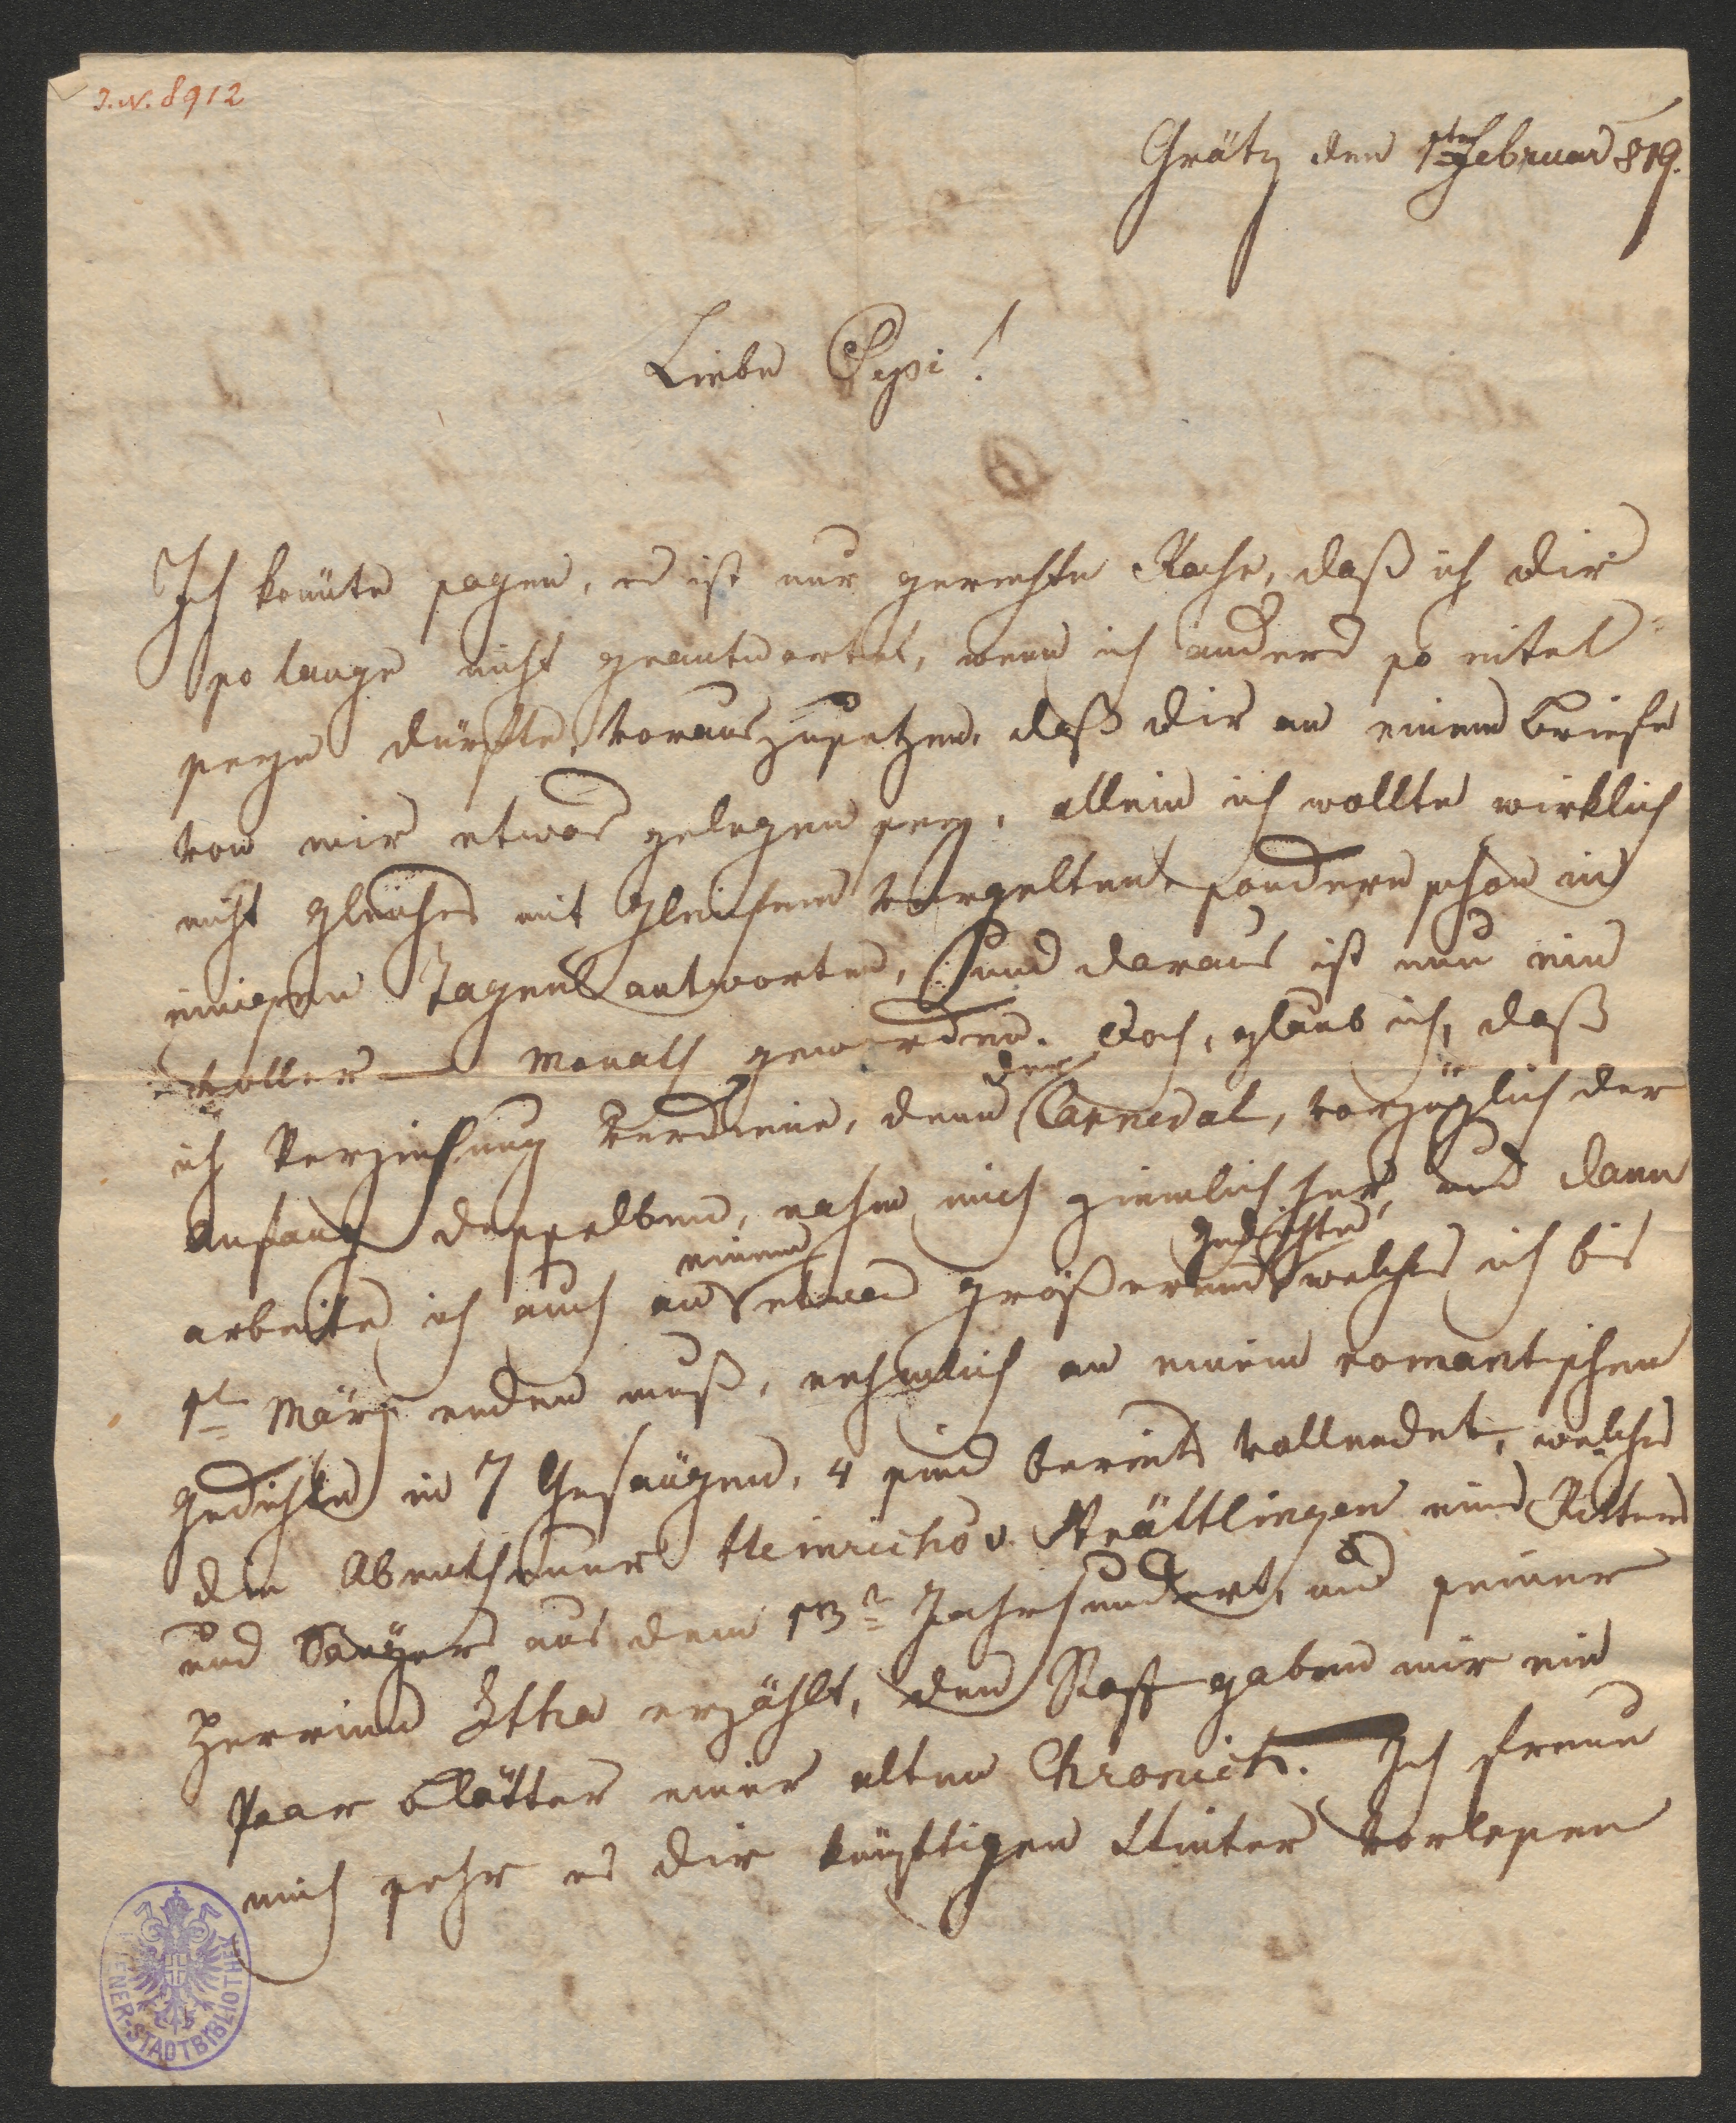 I.N. 8912
Grätz den 1ten Februar 819.
Liebe Pepi!
Ich könnte sagen, es ist nur gerechte Rache, daß ich dir
so lange nicht geantwortet, wenn ich anders so eitel
seyn dürfte, vorauszusetzen, daß dir an einem Briefe
von mir etwas gelegen sey, allein ich wollte wirklich
nicht gleiches mit gleichem vergelten, sondern schon in
einigen Tagen antworten, und daraus ist nun ein
voller Monath geworden. Doch, glaub ich, daß
ich Verzeihung verdiene, denn der Carneval, vorzüglich der
Anfang desselben, nahm mich ziemlich her, und dann
arbeite ich auch an einem etwas größerem Gedichte welches ich bis
1t März enden muß, nehmlich an einem romantischen
Gedichte in 7 Gesängen, 4 sind bereits vollendet, welches
die Abentheuer Heinrichs v. Strättlingen eines Ritters
und Sängers aus dem 13t Jahrhundert, und seiner
Herrinn Itha erzählt, den Stoff gaben mir ein
Paar Blätter einer alten Chronick. Ich freue
mich sehr es dir künftigen Winter vorlesen
WIENER-STADTBIBLIOTHEK